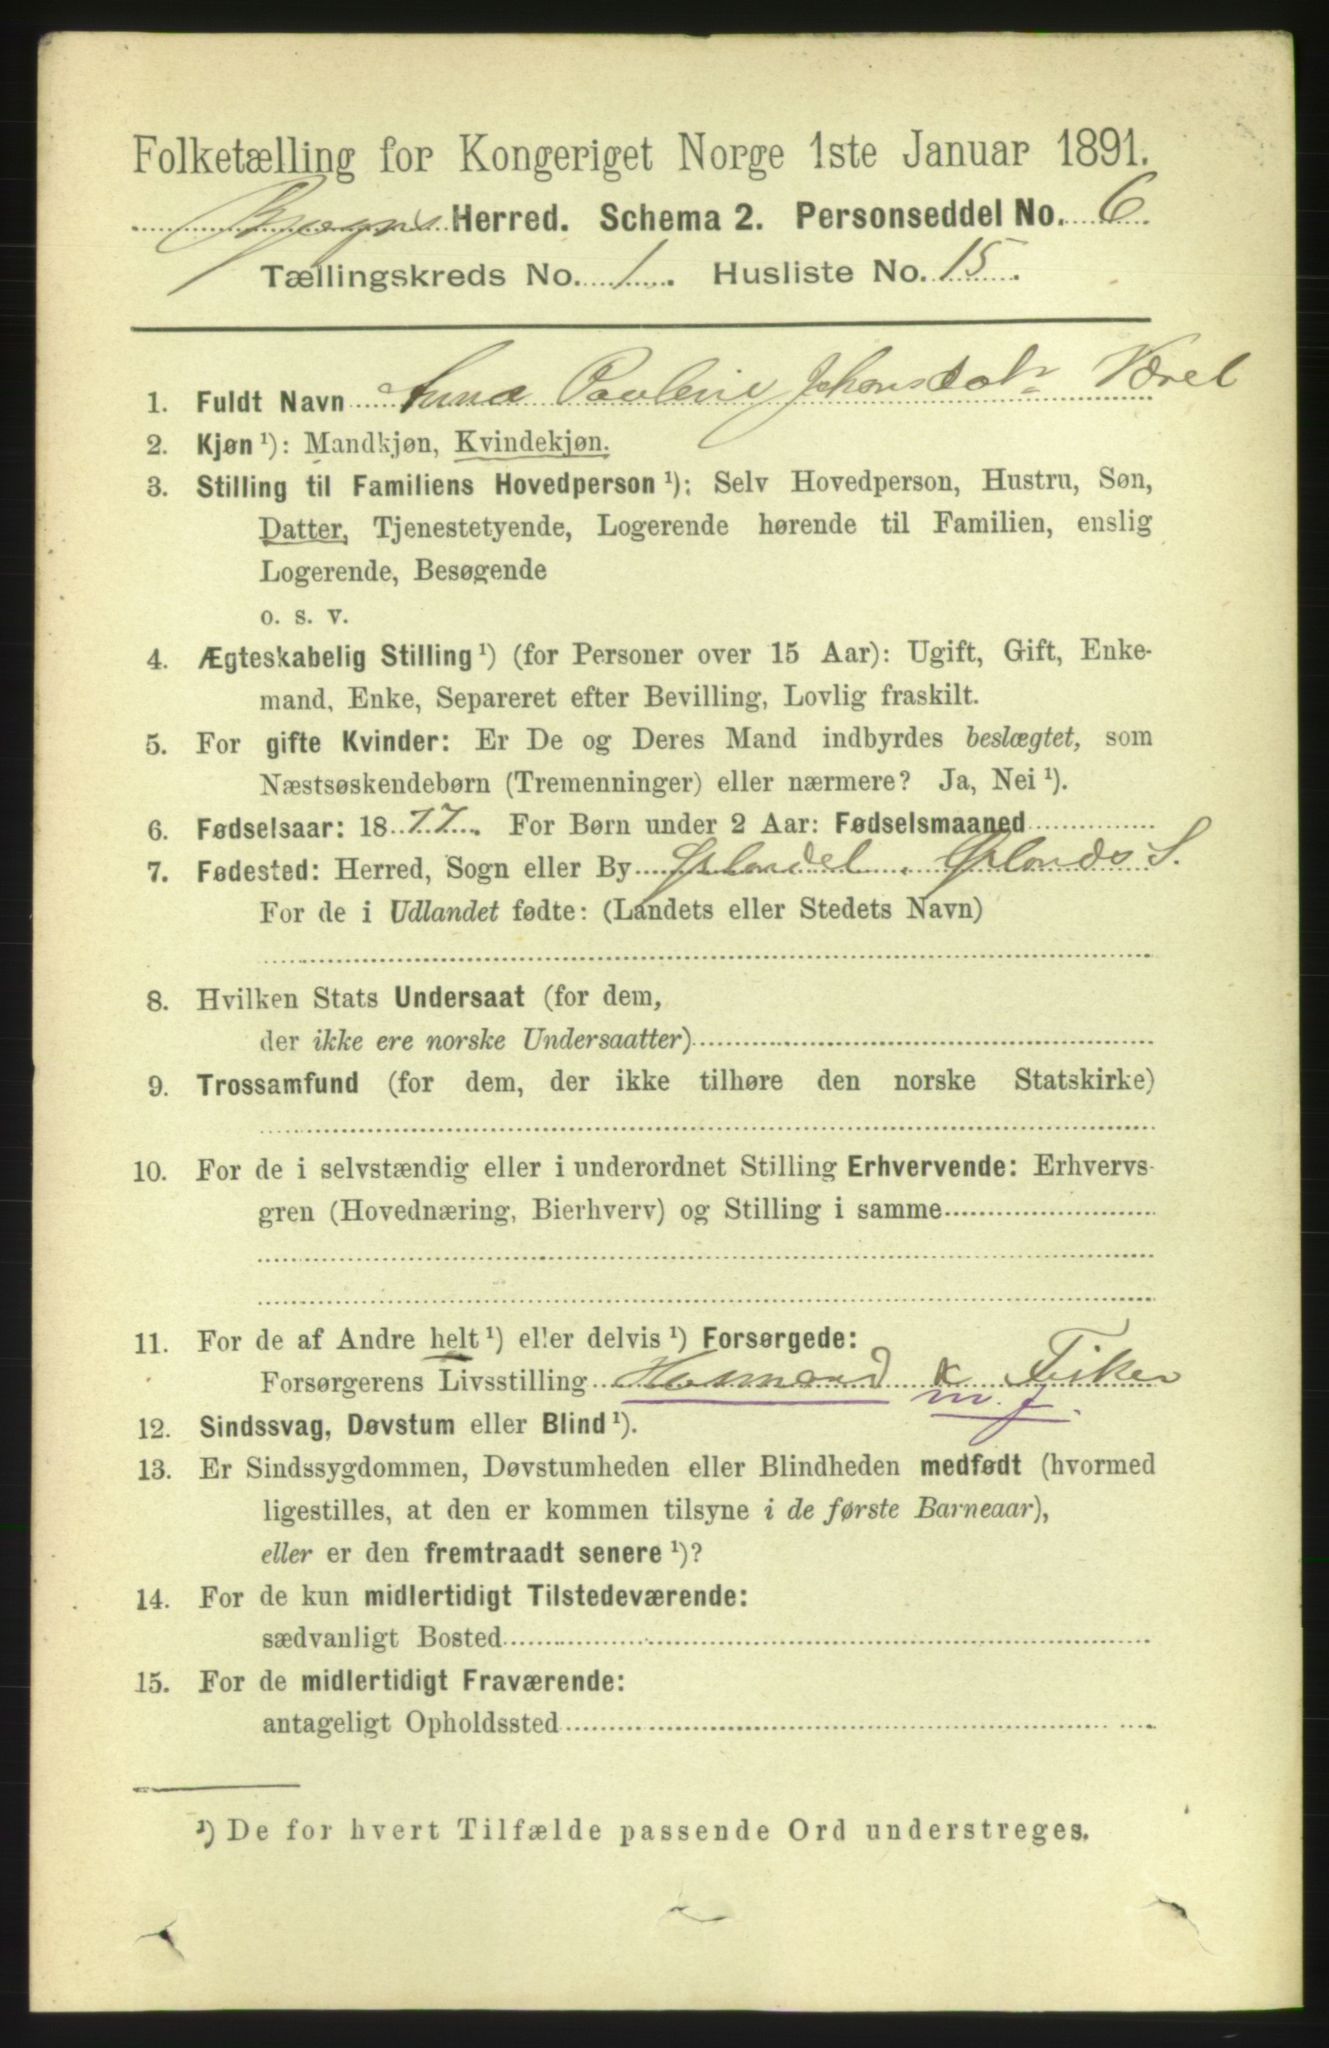 Folketælling for Kongeriget Norge 1ste Januar 1891.
Bjugns Herred. Schema 2. Personseddel No. 6.
Tællingskreds No. 1. Husliste No. 15.
1. Fuldt Navn Anna Pauline Johansdatr
2. Kjøn ¹): Mandkjøn, Kvindekjøn.
3. Stilling til Familiens Hovedperson ¹): Selv Hovedperson, Hustru, Søn,
Datter, Tjenestetyende, Logerende hørende til Familien, enslig
Logerende, Besøgende
o. s. v.
4. Ægteskabelig Stilling ¹) (for Personer over 15 Aar): Ugift, Gift, Enke-
mand, Enke, Separeret efter Bevilling, Lovlig fraskilt.
5. For gifte Kvinder: Er De og Deres Mand indbyrdes beslægtet, som
Næstsøskendebørn (Tremenninger) eller nærmere? Ja, Nei ¹).
6. Fødselsaar: 1877. For Børn under 2 Aar: Fødselsmaaned
7. Fødested: Herred, Sogn eller By Ørlandet. Ørlands S.
For de i Udlandet fødte: (Landets eller Stedets Navn)
8. Hvilken Stats Undersaat (for dem,
der ikke ere norske Undersaatter)
9. Trossamfund (for dem, der ikke tilhøre den norske Statskirke)
10. For de i selvstændig eller i underordnet Stilling Erhvervende: Erhvervs-
gren (Hovednæring, Bierhverv) og Stilling i samme
11. For de af Andre helt ¹) eller delvis ¹) Forsørgede:
Forsørgerens Livsstilling Husmand & Fisker
m. f.
12. Sindssvag, Døvstum eller Blind ¹).
13. Er Sindssygdommen, Døvstumheden eller Blindheden medfødt (hvormed
ligestilles, at den er kommen tilsyne i de første Barneaar),
eller er den fremtraadt senere ¹)?
14. For de kun midlertidigt Tilstedeværende:
sædvanligt Bosted
15. For de midlertidigt Fraværende:
antageligt Opholdssted
¹) De for hvert Tilfælde passende Ord understreges.